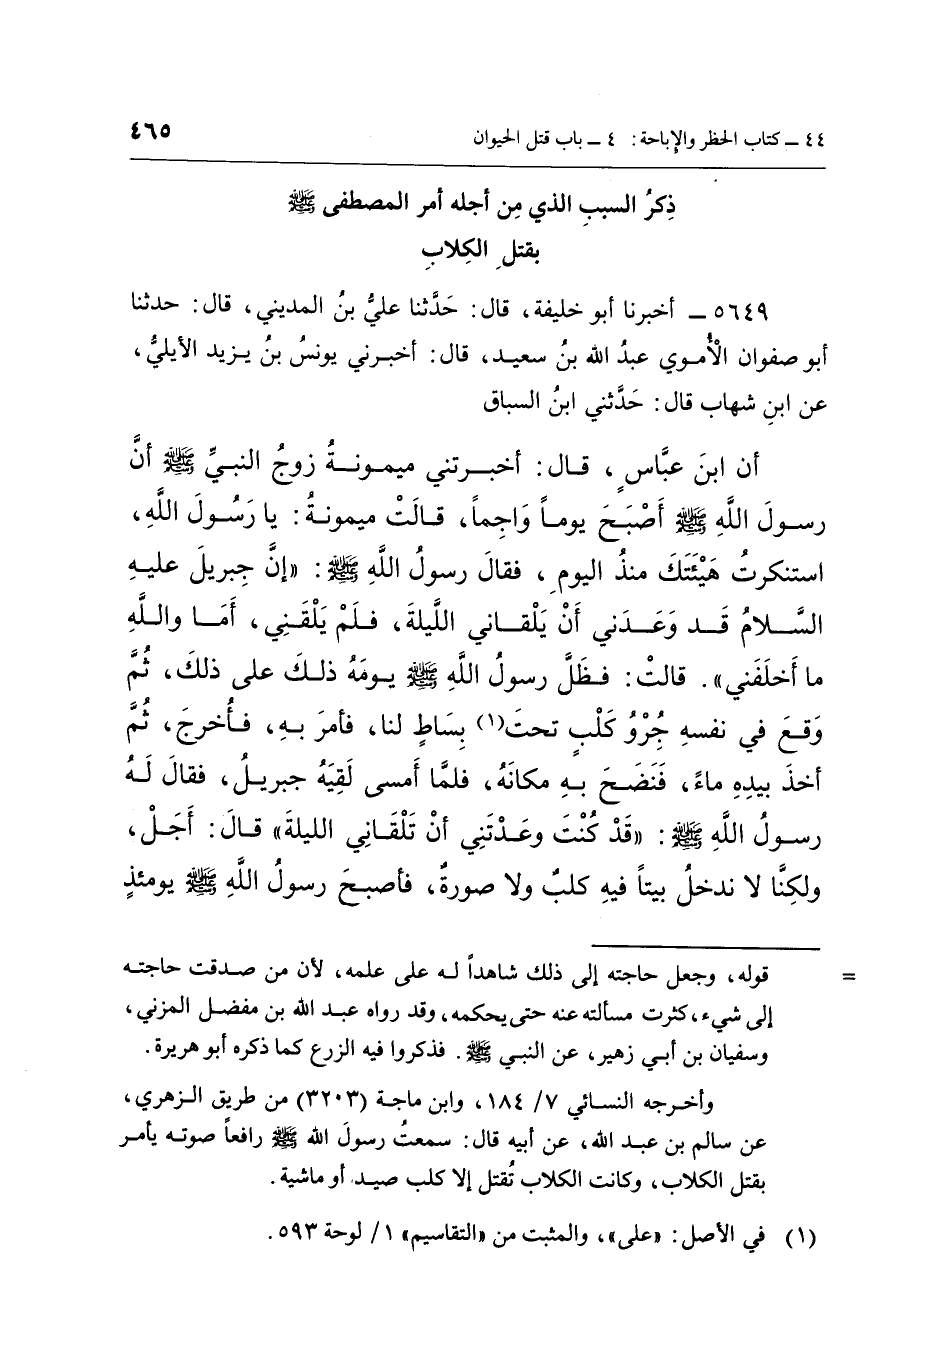 ٤٤ ــ كتاب الحظر والإباحة: ٤ ــ باب قتل الحيوان ٤٦٥
ذِكرُ السببِ الذي مِن أجله أمر المصطفى ﷺ
بقتلِ الكِلابِ
٥٦٤٩ ــ أخبرنا أبو خليفة، قال: حَدَّثنا عليُّ بنُ المديني، قال: حدثنا
أبو صفوان الأُموي عبدُ الله بنُ سعيد، قال: أخبرني يونسُ بنُ يزيد الأيليُّ،
عن ابنِ شهاب قال: حَدَّثني ابنُ السباق
أن ابنَ عبَّاسٍ، قال: أخبرتني ميمونةُ زوجُ النبيِّ ﷺ أنَّ
رسولَ اللَّهِ ﷺ أَصْبَحَ يوماً وَاجِماً، قالَتْ ميمونةُ: يا رَسُولَ اللَّهِ،
استنكرتُ هَيْئَتَكَ منذُ اليومِ، فقالَ رسولُ اللَّهِ ﷺ: «إنَّ جِبريلَ عليهِ
السَّلامُ قَد وَعَدَني أَنْ يَلْقاني اللَّيلةَ، فلَمْ يَلْقَنِي، أَمَا واللَّهِ
ما أَخلَفَني». قالتْ: فظَلَّ رسولُ اللَّهِ ﷺ يومَهُ ذلكَ على ذلكَ، ثُمَّ
وَقعَ في نفسهِ جُرْوُ كَلْبٍ تحتَ(١) بِسَاطٍ لنا، فأمرَ بهِ، فأُخرجَ، ثُمَّ
أخذَ بيدِهِ ماءً، فَنَضَحَ بهِ مكانَهُ، فلمَّا أَمسى لَقِيَهُ جبريلُ، فقالَ لَهُ
رسولُ اللَّهِ ﷺ: «قَدْ كُنْتَ وعَدْتَنِي أنْ تَلْقَاني الليلةَ» قالَ: أَجَلْ،
ولكِنَّا لا ندخلُ بيتاً فيهِ كلبٌ ولا صورةٌ، فأصبحَ رسولُ اللَّهِ ﷺ يومئذٍ
= قوله، وجعل حاجته إلى ذلك شاهداً له على علمه، لأن من صدقت حاجته
إلى شيء، كثرت مسألته عنه حتى يحكمه، وقد رواه عبد الله بن مفضل المزني،
وسفيان بن أبي زهير، عن النبي ﷺ. فذكروا فيه الزرع كما ذكره أبو هريرة.
وأخرجه النسائي ٧/ ١٨٤، وابن ماجة (٣٢٠٣) من طريق الزهري،
عن سالم بن عبد الله، عن أبيه قال: سمعتُ رسولَ الله ﷺ رافعاً صوته يأمر
بقتل الكلاب، وكانت الكلاب تُقتل إلا كلب صيد أو ماشية.
(١) في الأصل: «على»، والمثبت من «التقاسيم» ١/ لوحة ٥٩٣.